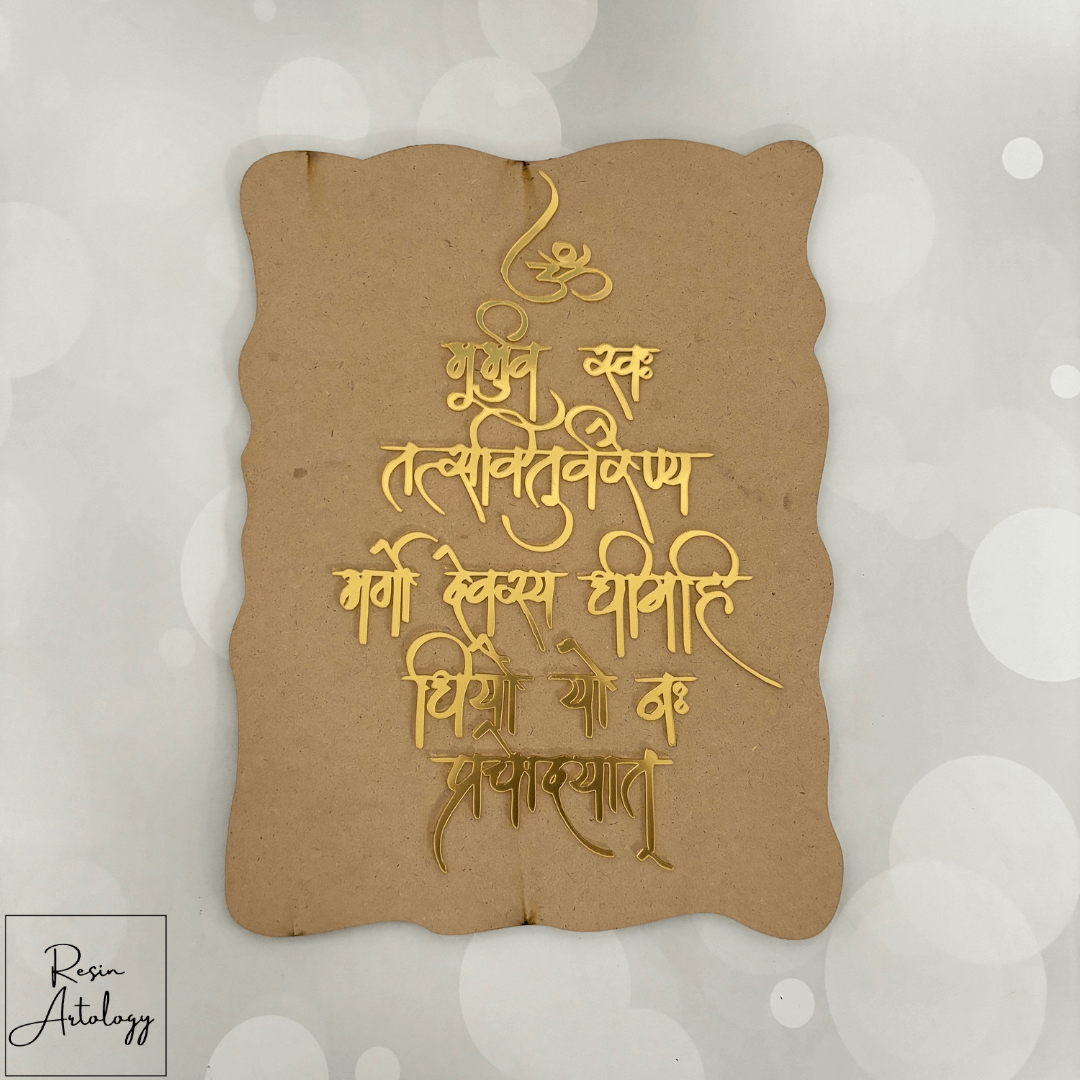 ॐ
भूर्भुव स्वः
तत्सवितुर्वरेण्य
भर्गो देवस्य धीमहि
धियो यो नः
प्रचोदयात्
Resin
Artology